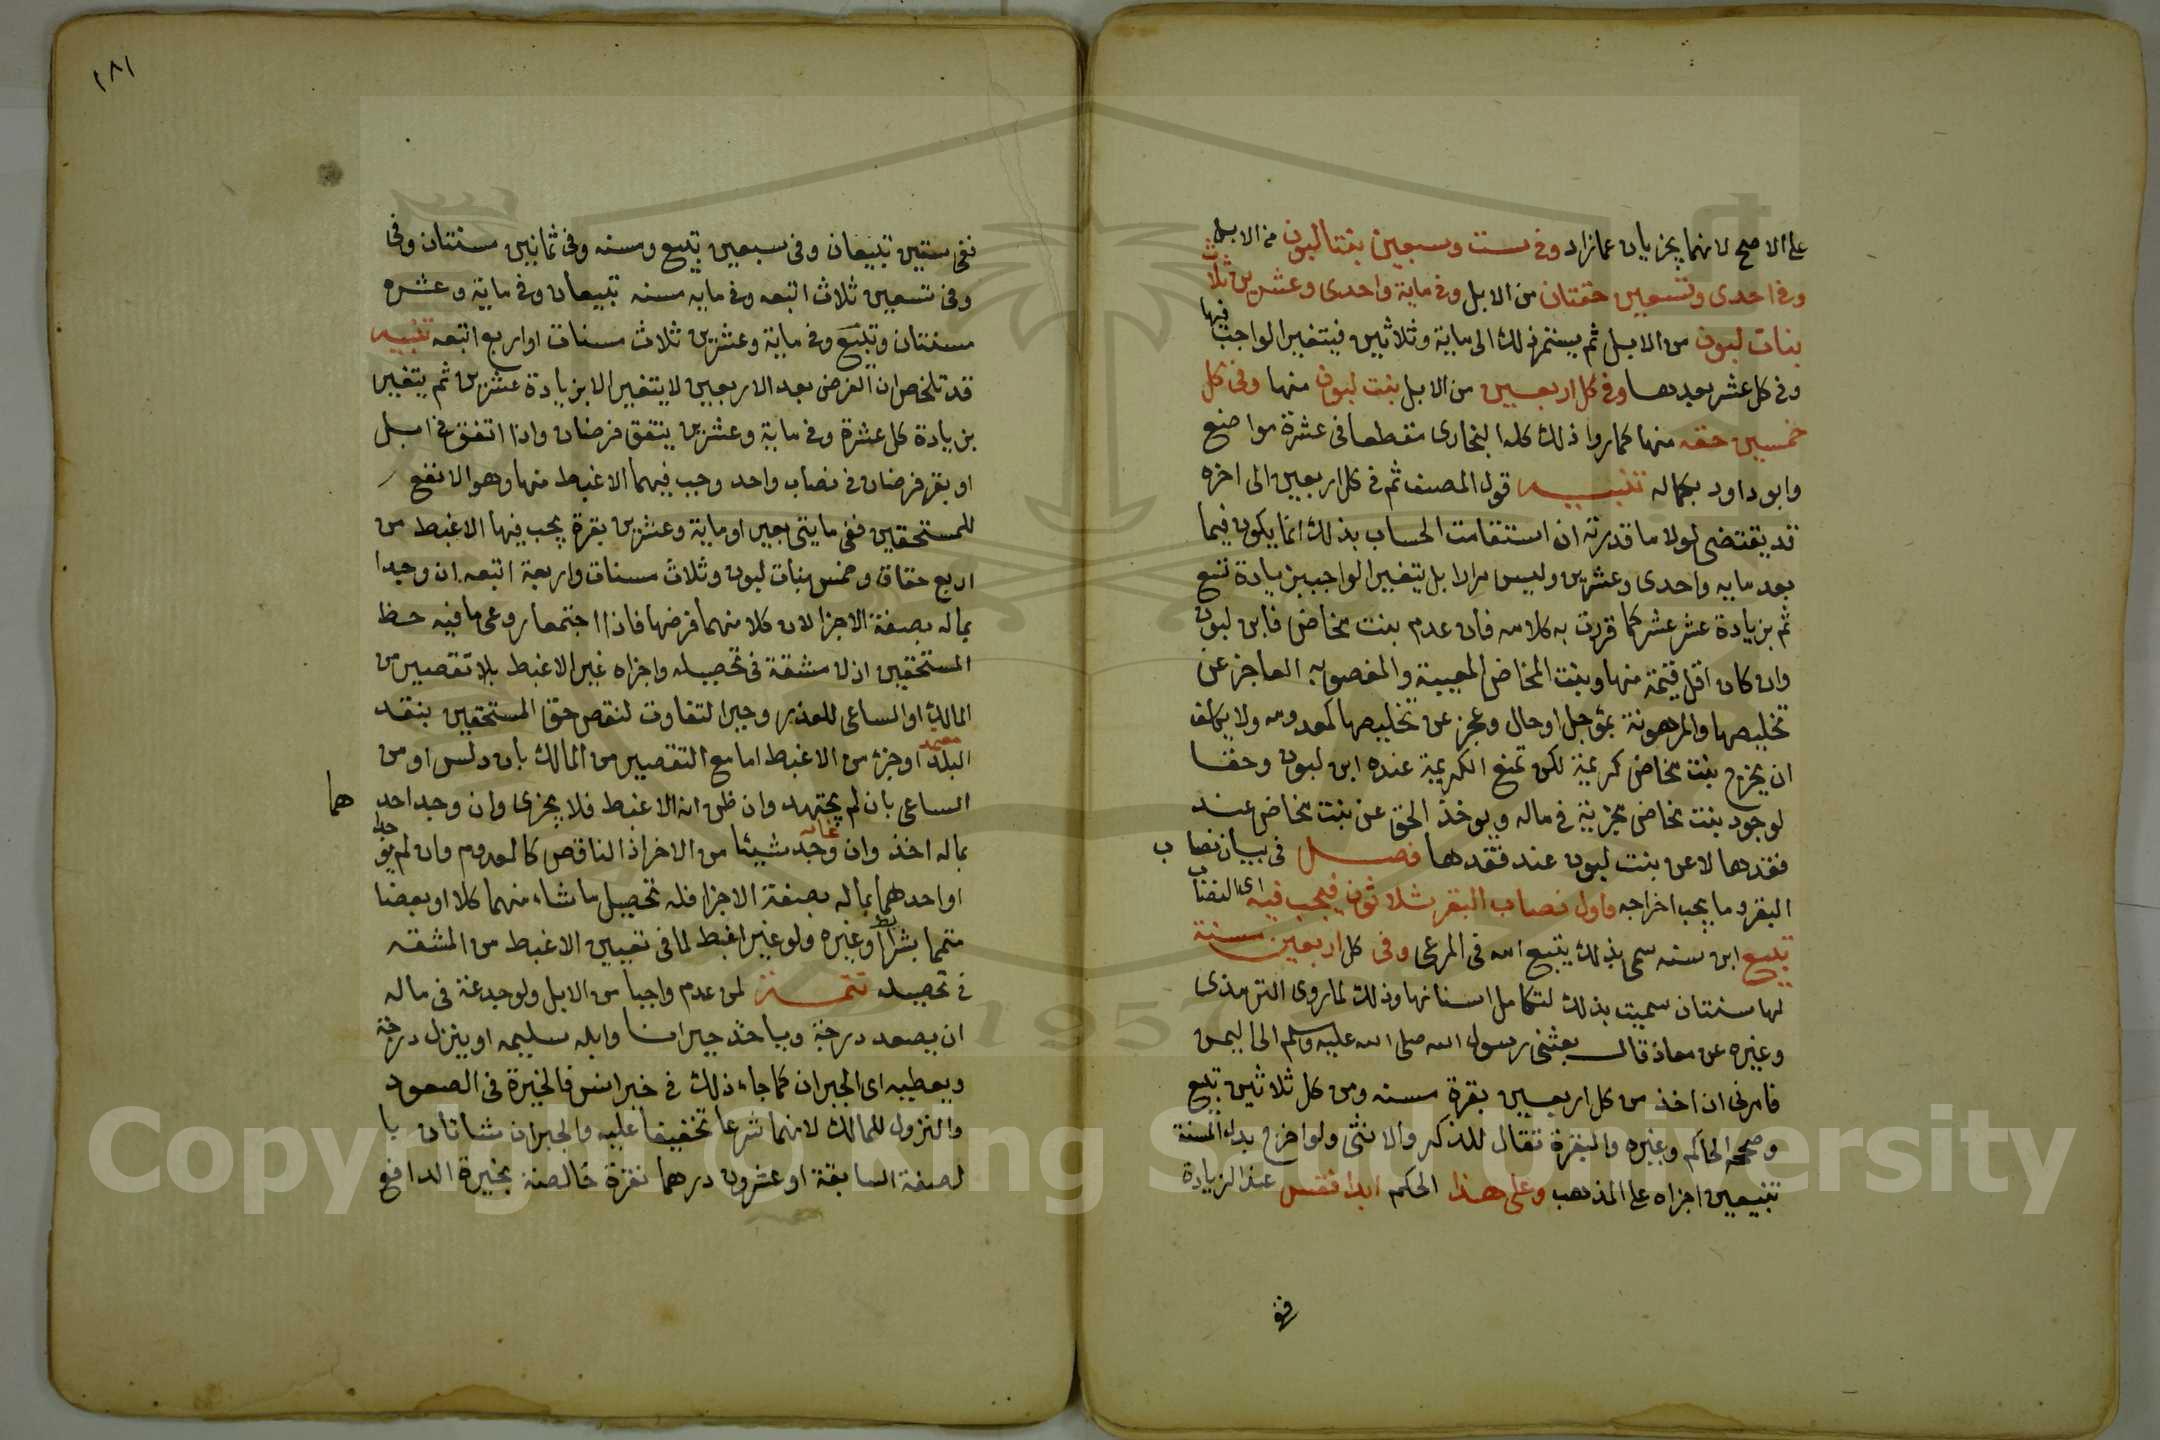 على الاصح لانهما يجزيان عما زاد وفي ست وسبعين بنتا لبون من الابل
وفي احدى وتسعين حقتان من الابل وفي ماية واحدى وعشرين ثلاث
بنات لبون من الابل ثم يستمر ذلك الى ماية وثلاثين فيتغير الواجب فيها
وفي كل عشر بعدها وفي كل اربعين من الابل بنت لبون منها وفي كل
خمسين حقه منها كما روا ذلك كله البخارى مقطعا في عشرة مواضع
وابو داود بكماله تنبيه قول المصنف ثم في كل اربعين الى اخره
قد يقتضى لولا ما قدرته ان استقامت الحساب بذلك انما يكون فيما
بعد مايه واحدى وعشرين وليس مرادا بل يتغير الواجب بزيادة تسع
ثم بزيادة عشر عشر كما قررت به كلامه فان عدم بنت مخاض فابن لبون
وان كان اقل قيمة منها وبنت المخاض المعيبة والمغصوبه العاجز عن
تخليصها والمرهونة بمؤجل او حال وعجز عن تخليصها كمعدومه ولا يكلف
ان يخرج بنت مخاض كريمة لكن تمنع الكريمة عنده ابن لبون وحقا
لوجود بنت مخاض مجزية في ماله ويوخذ الحق عن بنت مخاض عند
فقدها لا عن بنت لبون عند فقدها فصل في بيان نصاب
البقر وما يجب اخراجه واول نصاب البقر ثلاثون فيجب فيه اى النصاب
تبيع ابن سنه سمى بذلك يتبع امه في المرعى وفي كل اربعين مسنة
لها سنتان سميت بذلك لتكامل اسنانها وذلك لما روى الترمذى
وغيره عن معاذ قال بعثنى رسول الله صلى الله عليه وسلم الى اليمن
فامرنى ان اخذ من كل اربعين بقرة مسنه ومن كل ثلاثين تبيع
وصححه الحاكم وغيره والبقرة تقال للذكر والانثى ولو اخرج بدل المسنة
تبيعين اجزاه على المذهب وعلى هذا الحكم ابدا فقس عند الزيادة
ففي
١٨١
ففي ستين تبيعان وفي سبعين تبيع ومسنه وفي ثمانين مسنتان وفي
وفي تسعين ثلاث اتبعه وفي مايه مسنه تبيعان وفي ماية وعشره
مسنتان وتبيع وفي ماية وعشرين ثلاث مسنات او اربع اتبعه تنبيه
قد تلخص ان الفرض بعد الاربعين لا يتغير الا بزيادة عشرين ثم يتغير
بزيادة كل عشرة وفي ماية وعشرين يتفق فرضان واذا اتفق في ابل
او بقر فرضان في نصاب واحد وجب فيهما الاغبط منها وهو الانفع
للمستحقين ففي مايتى بعير او ماية وعشرين بقرة يجب فيها الاغبط من
اربع حقاق وخمس بنات لبون وثلاث مسنات واربعة اتبعه ان وجدا
بماله بصفة الاجزا لان كلا منهما فرضها فاذا اجتمعا روعى ما فيه حظ
المستحقين اذ لا مشقة في تحصيله واجزاه غير الاغبط بلا تقصير من
المالك او الساعى للعذر وجبر التفاوت لنقص حق المستحقين بنقد
البلد او جزء من الاغبط اما مع التقصير من المالك بان دلس او من
الساعى بان لم يجتهد وان ظن انه الاغبط فلا يجزى وان وجد احدهما
بماله اخذ وان وجد شيئا من الاخر اذ الناقص كالمعدوم وان لم يوجدا
او احدهما بماله بصفة الاجزا فله تحصيل ما شاء منهما كلا او بعضا
متمما بشرا او غيره ولو غير اغبط لما في تعيين الاغبط من المشقه
في تحصيله تتمة لمن عدم واجبا من الابل ولو جذعة في ماله
ان يصعد درجة وياخذ جبرانا وابله سليمه او ينزل درجة
ويعطيه اى الجبران كما جاء ذلك في خبر انس فالخيرة في الصعود
والنزول للمالك لانهما شرعا تخفيفا عليه والجبران شاتان با
لصفة السابقة او عشرون درهما نقرة خالصة بخيرة الدافع
Copyright © King Saud University
1957